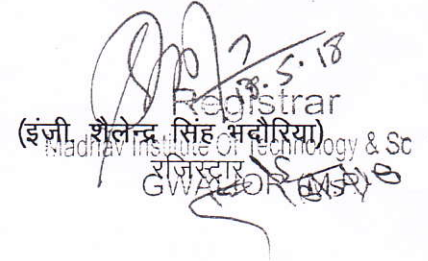 8.5.18
Registrar
(इंजी. शैलेन्द्र सिंह भदौरिया)
Madhav Institute Of Technology & Sc
रजिस्ट्रार
GWALIOR (M.P.)